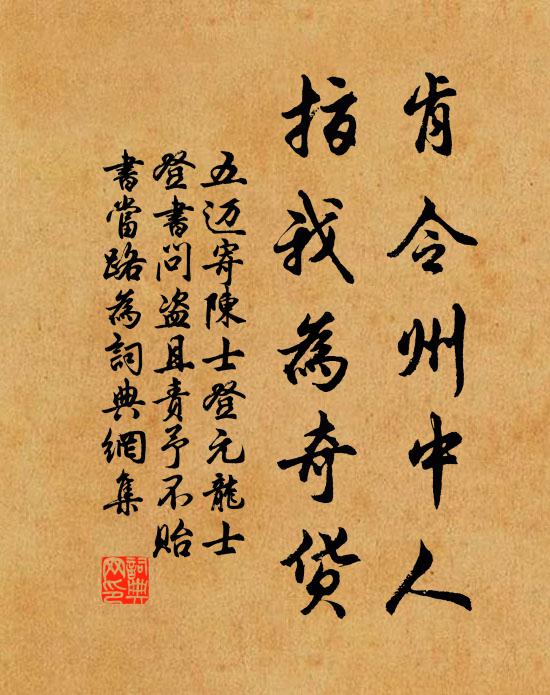 肯令州中人
指我為奇貨
五迈寄陳士登元龍士
登書問盗且責予不貽
書當路為詞典網集
詞典
网印